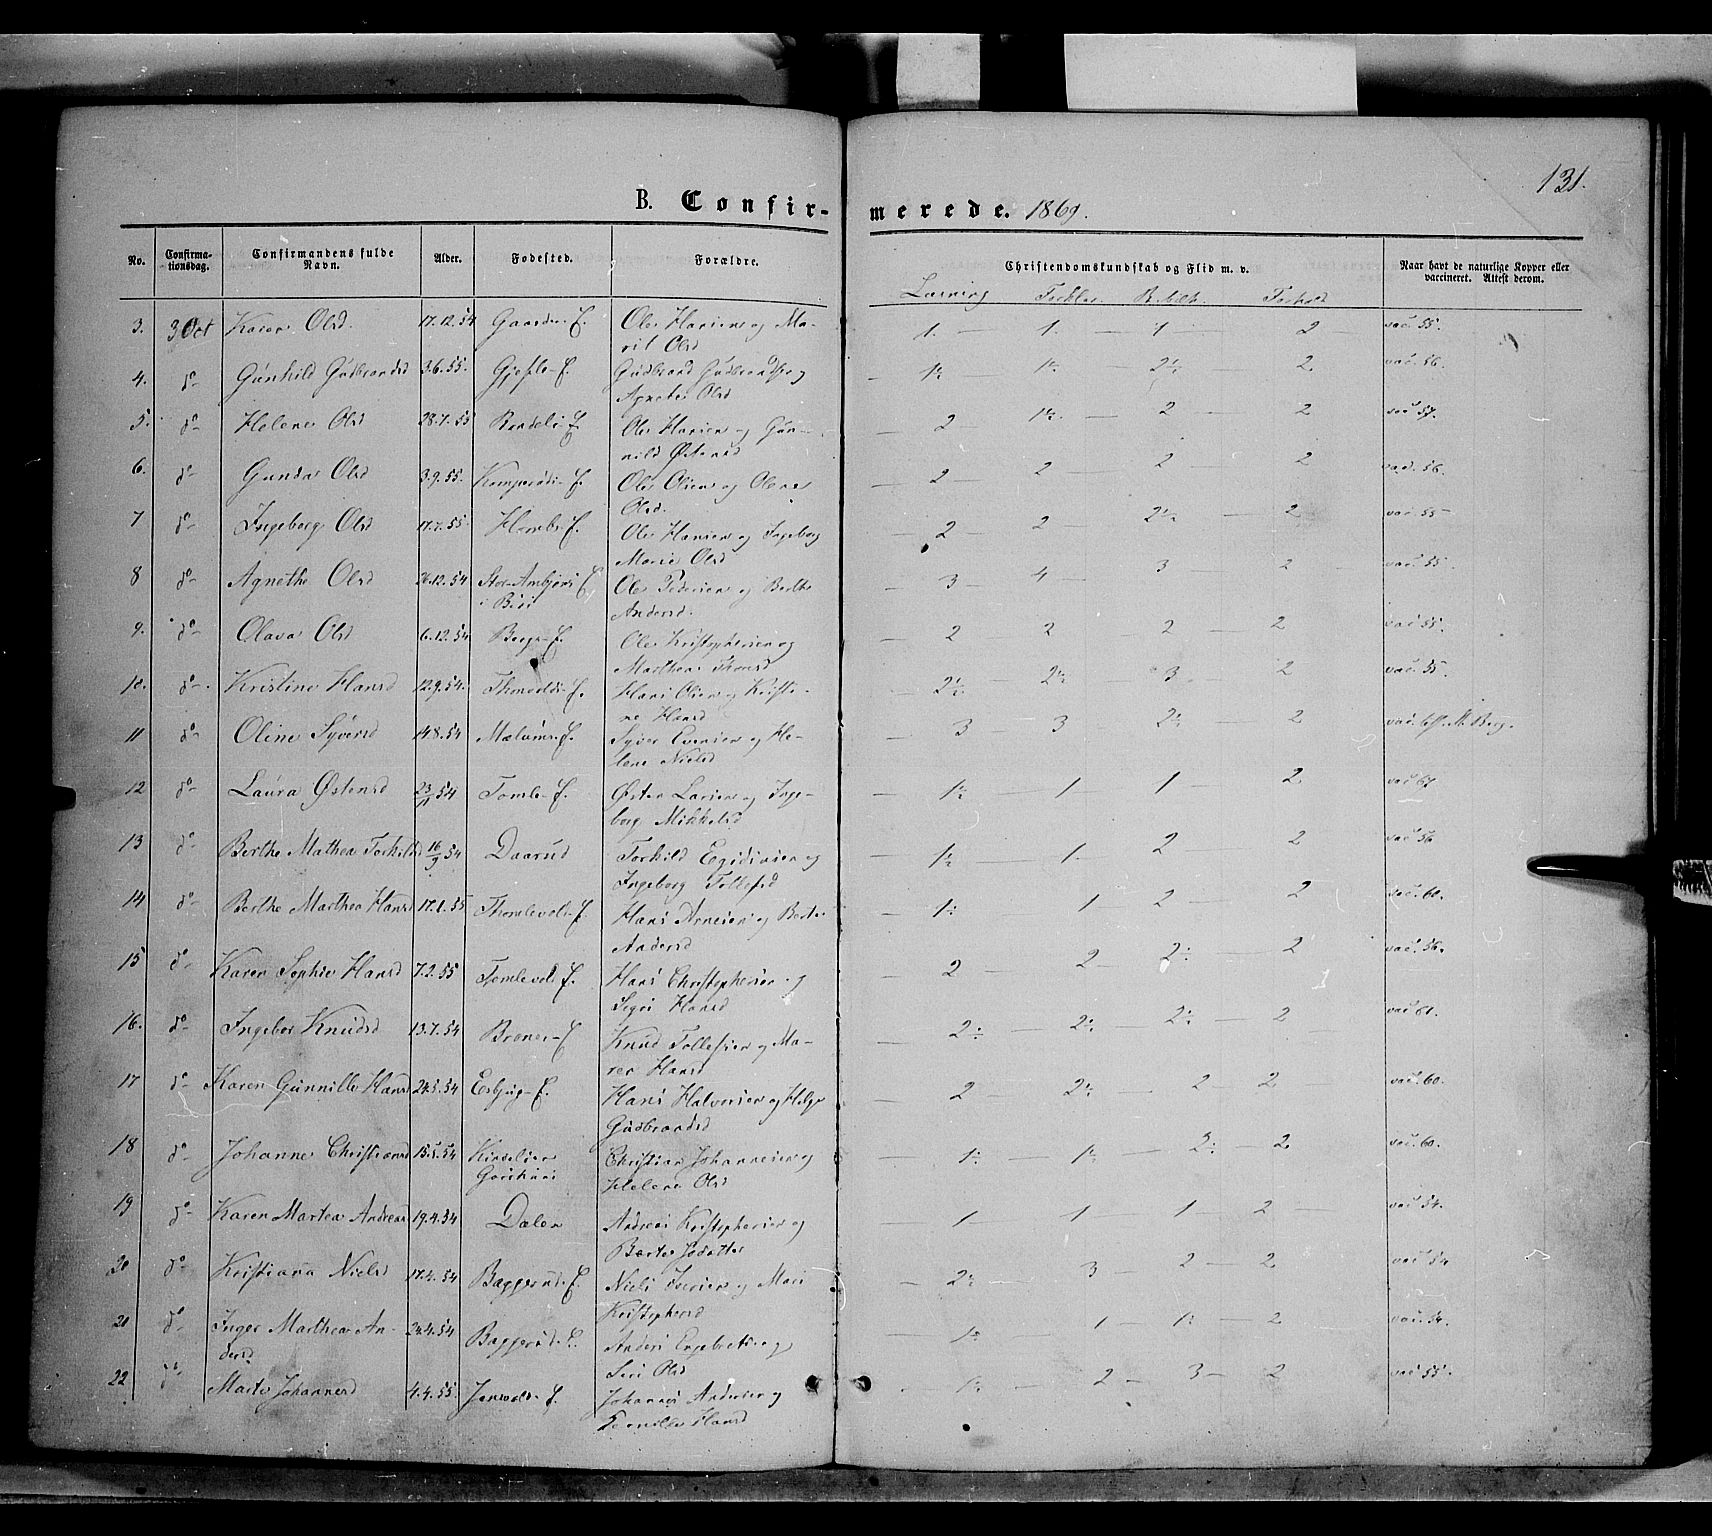 131.
B. Confir-merede. 1869.
No. Confirma-tionsdag. Confirmandens fulde Navn. Alder. Fødested. Forældre. Christendomskundskab og Flid m. v. Naar havt de naturlige Kopper eller vaccineret. Attest derom.
Læsning Forhold
3. 3 Oct Karen Olsd. 17.12.54 E. Ole Hansen og Ma- 1. — 1. — 1 — 2 — vac. 55.
rit Olsd
4. do Gunhild Gudbrandsd 3.6.55. E. Gudbrand Gudbrandsen og — 1½ — 1½ — 2½ — 2. vac. 56.
Agnethe Olsd
5. do Helene Olsd 28.7.55 E. Ole Hansen og Gun- — 2 1½. — 2 — 2 vac. 57.
nild Østensd
6. do Gunda Olsd 3.9.55. E. Ole Olsen og Olene — 2 — 2 — 2 — 2 vac. 56.
Olsd.
7 do Ingeborg Olsd 17.7.55 E. Ole Hansen og Ingeborg — 2 2 — 2½ — 2 vac. 55
Marie Olsd
8 do Agnethe Olsd 26.12.54 E. Ole Pedersen og Berthe — 3 — 4 — 3 — 2 vac. 55.
i Biri Andersd.
9. do Olava Olsd 6.12.54 Berge-E. Ole Kristophersen og — 2 2 — 2 — 2 vac. 55.
Marthea
10. do Kristine Hansd 12.9.54. E. Hans Olsen og Kristi- — 2½ — 2½ — 3 2 vac. 55.
ne Hansd
11 do Oline Syversd 14.8.54 Mælums-E. Syver Evensen og He- 3 — 3 — 2½ — 2 vac. M. Berg.
lene Nielsd
12 do Laura Østensd 23/11 54 Tomle-E. Østen Larsen og Inge- — 1½ — 1 — 1 2 vac 67
borg Mikkelsd
13 do Berthe Mathea Torkilsd 16/9 54 Daarud Torkild Egidiusen og — 1½ — 1. 2 2 vac 56
Ingeborg Tollefsd
14 do Berthe Marthea Hansd 17.1.55 Thomlevolds-E. Hans Arnesen og Berte — 1½ 1 — 2 — 2 vac. 60.
Andersd
15 do Karen Sophie Hansd 7.2.55 Tomlevold-E. Hans Christophersen og — 2 2 — 2½ — 2 vac. 56.
Hansd
16. do Ingebor Knudsd 13.7.54 E Knud Tollefsen og Ma- — 2½ — 2½ — 2½ — 2 vac 61.
ren Hansd
17 do Karen Gunnille Hansd 24.5.54 E. Hans Halvorsen og Helge — 2 2½ — 2 2 — vac. 60.
Gudbrandsd
18 do Johanne Christiansd 15.5.54 Christian Johannesen og — 1½ — 1½ 2. vac. 60.
Helene Olsd
19 do Karen Martea Andreasd 19.4.54 Dalen Andreas Kristophersen og — 1 — 1 — 1 2 — vac. 54.
20 do Kristiana Nielsd 17.4.54 Baggerud-E. Niels Iversen og Mari — 2½ 3 — 2 — 2. vac 54
Kristophersd
21 do Inger Marthea An- 24.4.54 Baggerud-E. Anders Engebretsen og — 1½ 1 — 1½ — 2 vac. 54.
dersd Siri Olsd
22 do Marte Johannesd 4.4.55. E. Johannes Andersen og 1½ — 2 — 3 — 2 vac 55.
Hansd